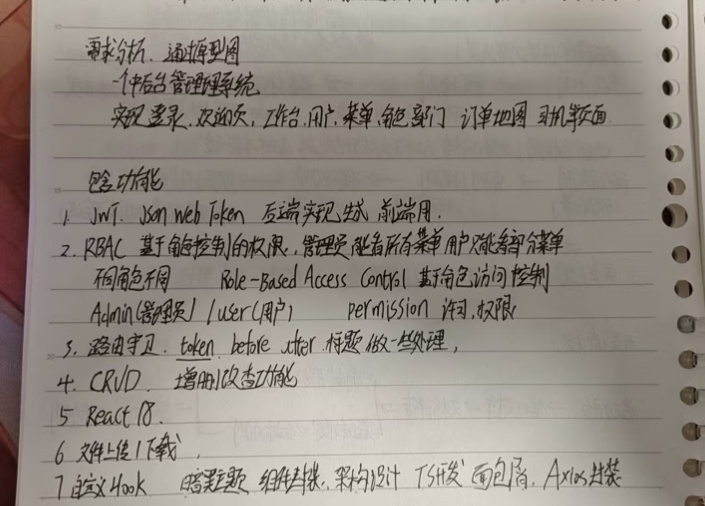 需求分析、通过原型图
一个中后台管理系统
实现登录、欢迎页、工作台、用户、菜单、角色部门 订单地图 司机等页面
包含功能
1. JWT. Json Web Token 后端实现生成 前端用.
2. RBAC 基于角色控制的权限, 管理员能看所有菜单用户只能看部分菜单
不同角色不同 Role-Based Access Control 基于角色访问控制
Admin(管理员) / user(用户) permission 许可、权限
3. 路由守卫. token before after 标题做一些处理,
4. CRUD. 增删改查功能
5 React 18.
6 文件上传/下载.
7 自定义Hook 暗黑主题 组件封装, 架构设计 TS开发 面包屑, Axios封装